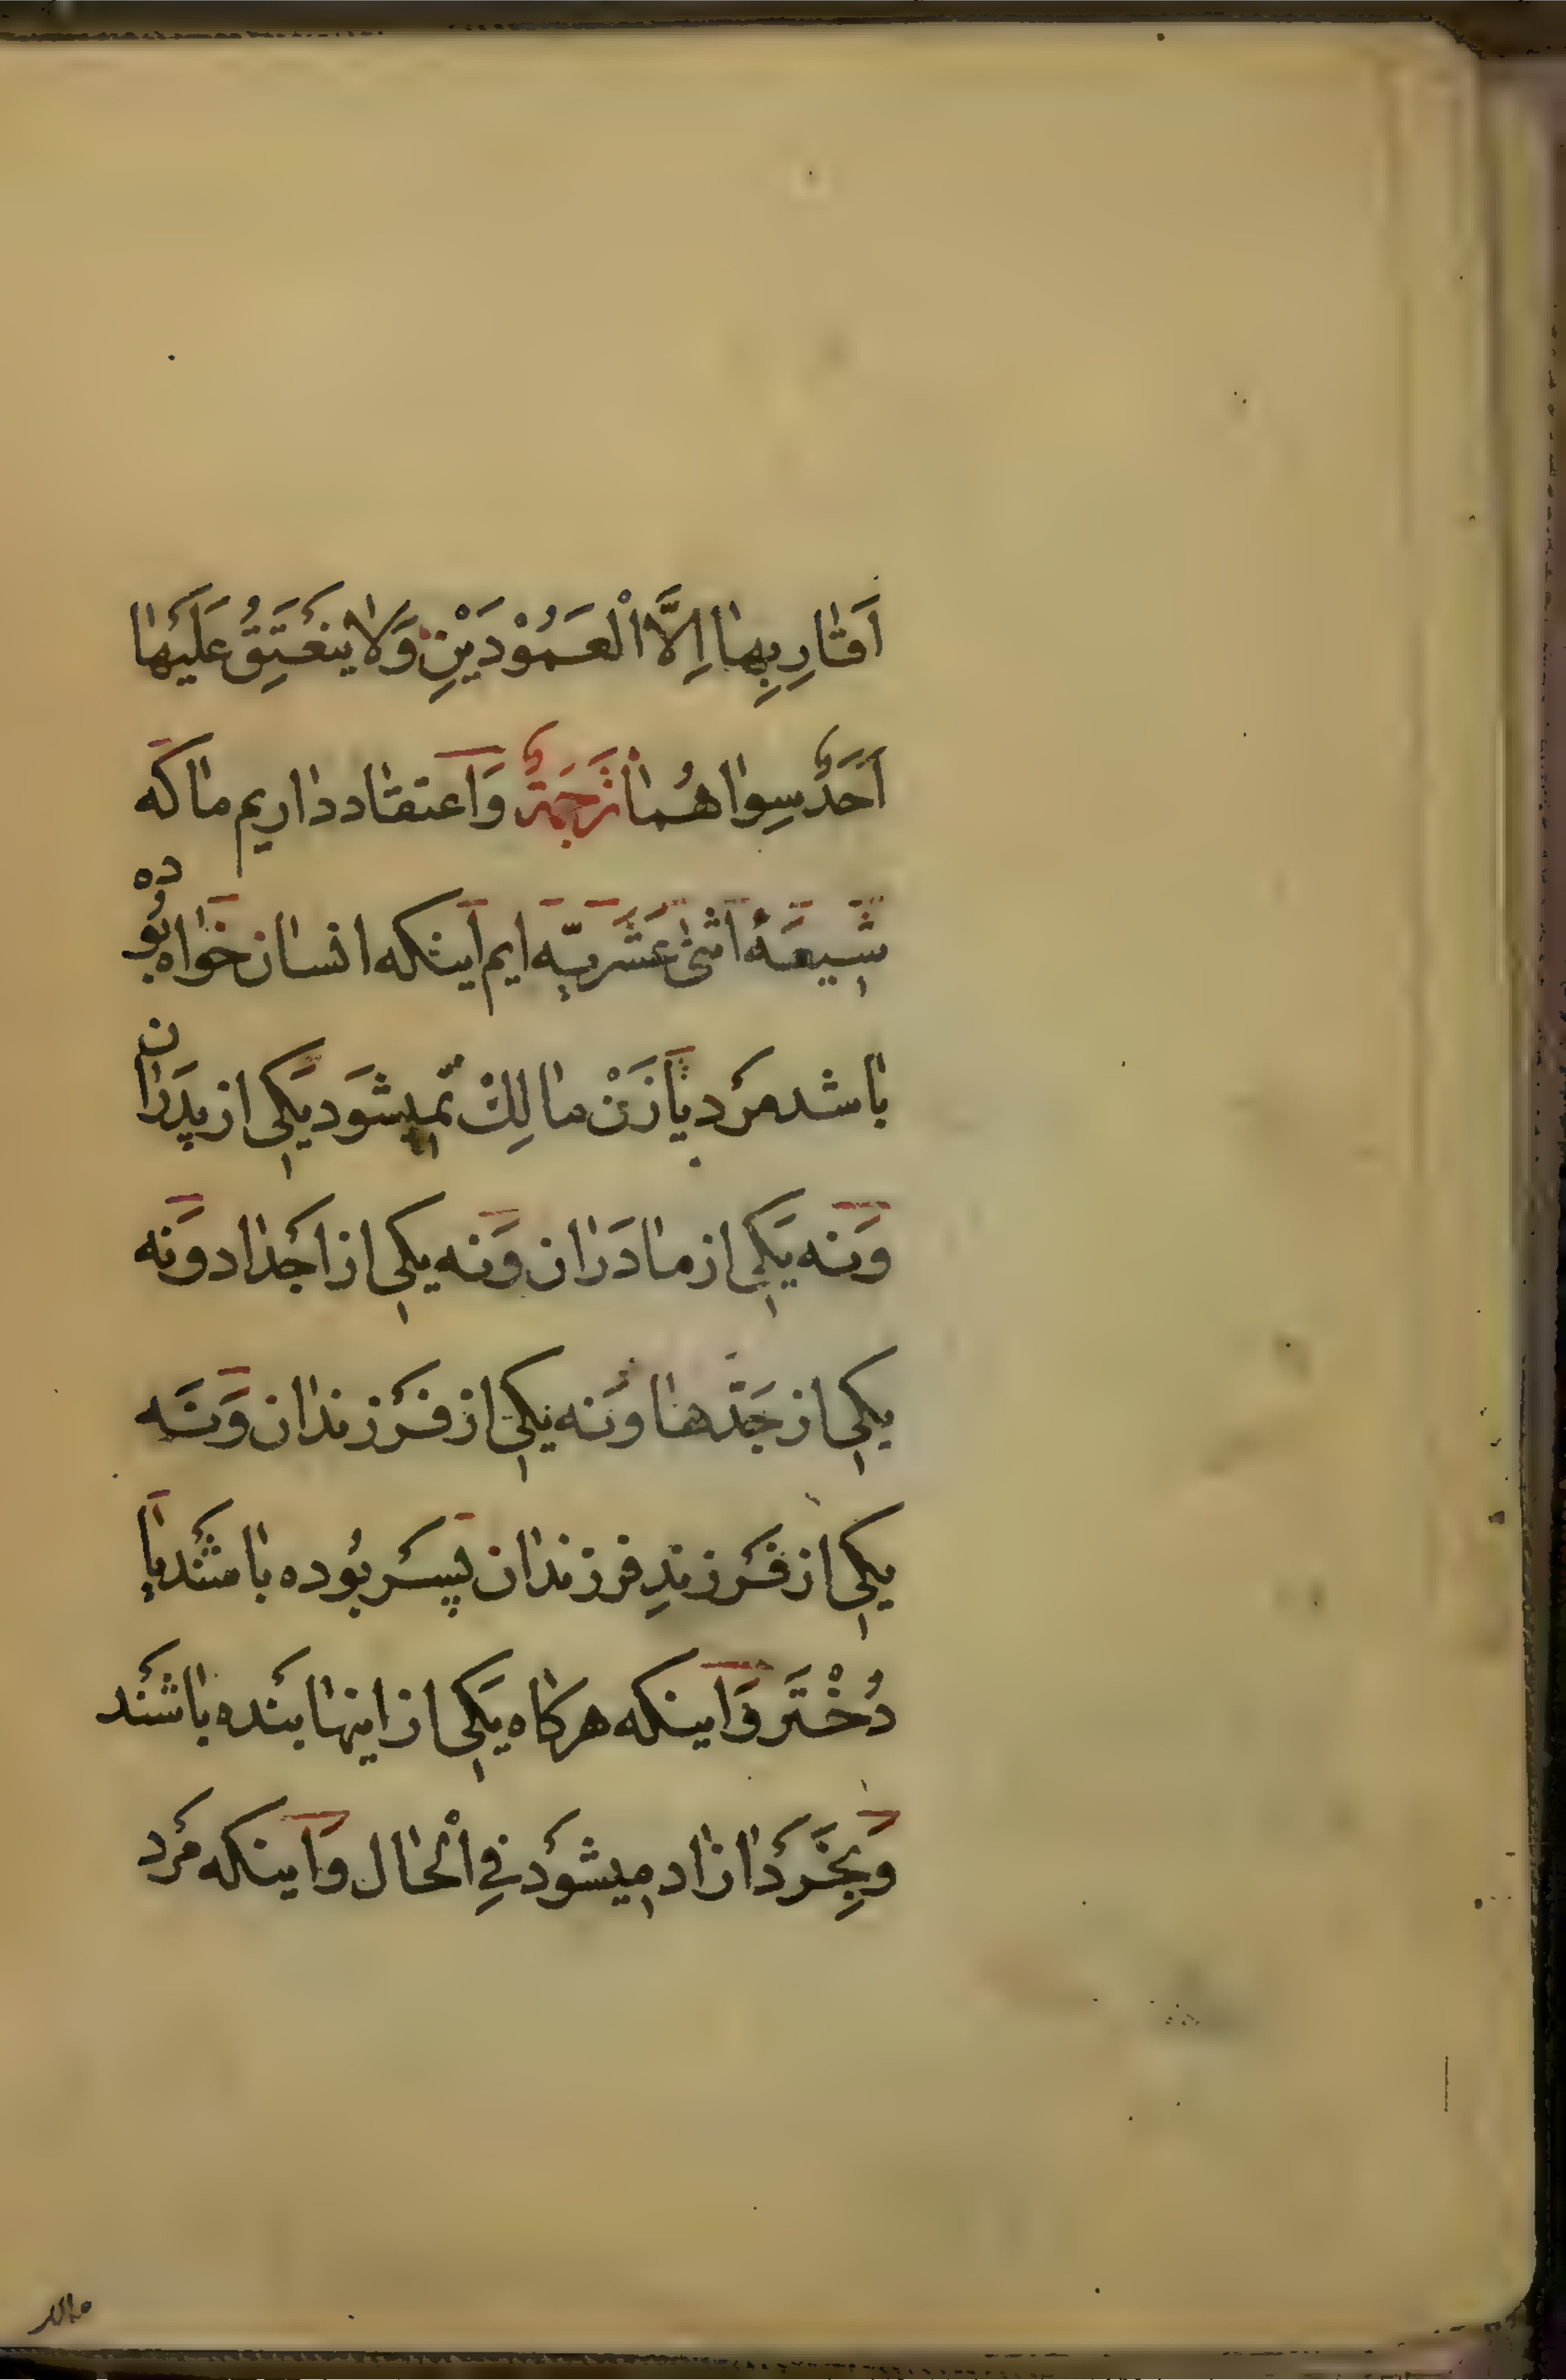 اَقٰارِبِهٰا اِلَّا الْعَمُوْدَيْنِ وَلٰا يَنْعَتِقُ عَلَيْهٰا
اَحَدٌ سِوٰاهُمٰا تَرْجَمَةٌ وَاعتقٰاد دٰاريم مٰا كَه
شِيعَهٔ اثنٰى عَشَريّه ايم اينكه انسٰان خوٰاه بُوده
بٰاشد مَرْد يٰا زَنْ مٰالِكْ نَمِيشَوَد يَكِى از پِدَرٰان
وَنه يَكِى از مٰادَرٰان وَنه يكِى از اجْدٰاد وَنه
يكِى از جَدّهٰا وَنه يكِى از فَرْزندٰان وَنَه
يكِى از فَرْزندِ فرزندٰان پِسَر بُوده بٰاشَنْد يٰا
دُخْتَر وَاينكه هركٰاه يَكِى از اينهٰا بَنْده بٰاشَنْد
وَبِخَرَدْ ازٰاد مِيشَوَدْ فِى الْحٰال وَاينكه مَرْد